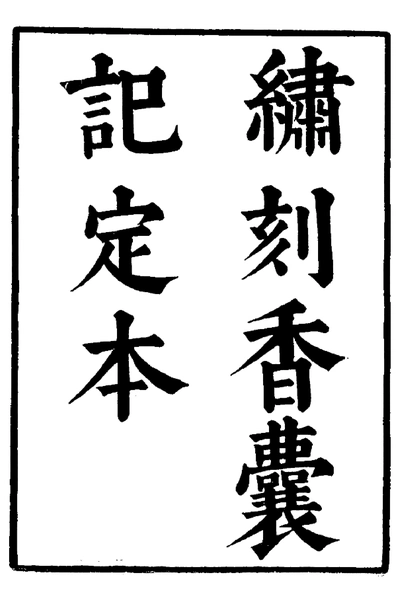 繡刻香囊
記定本